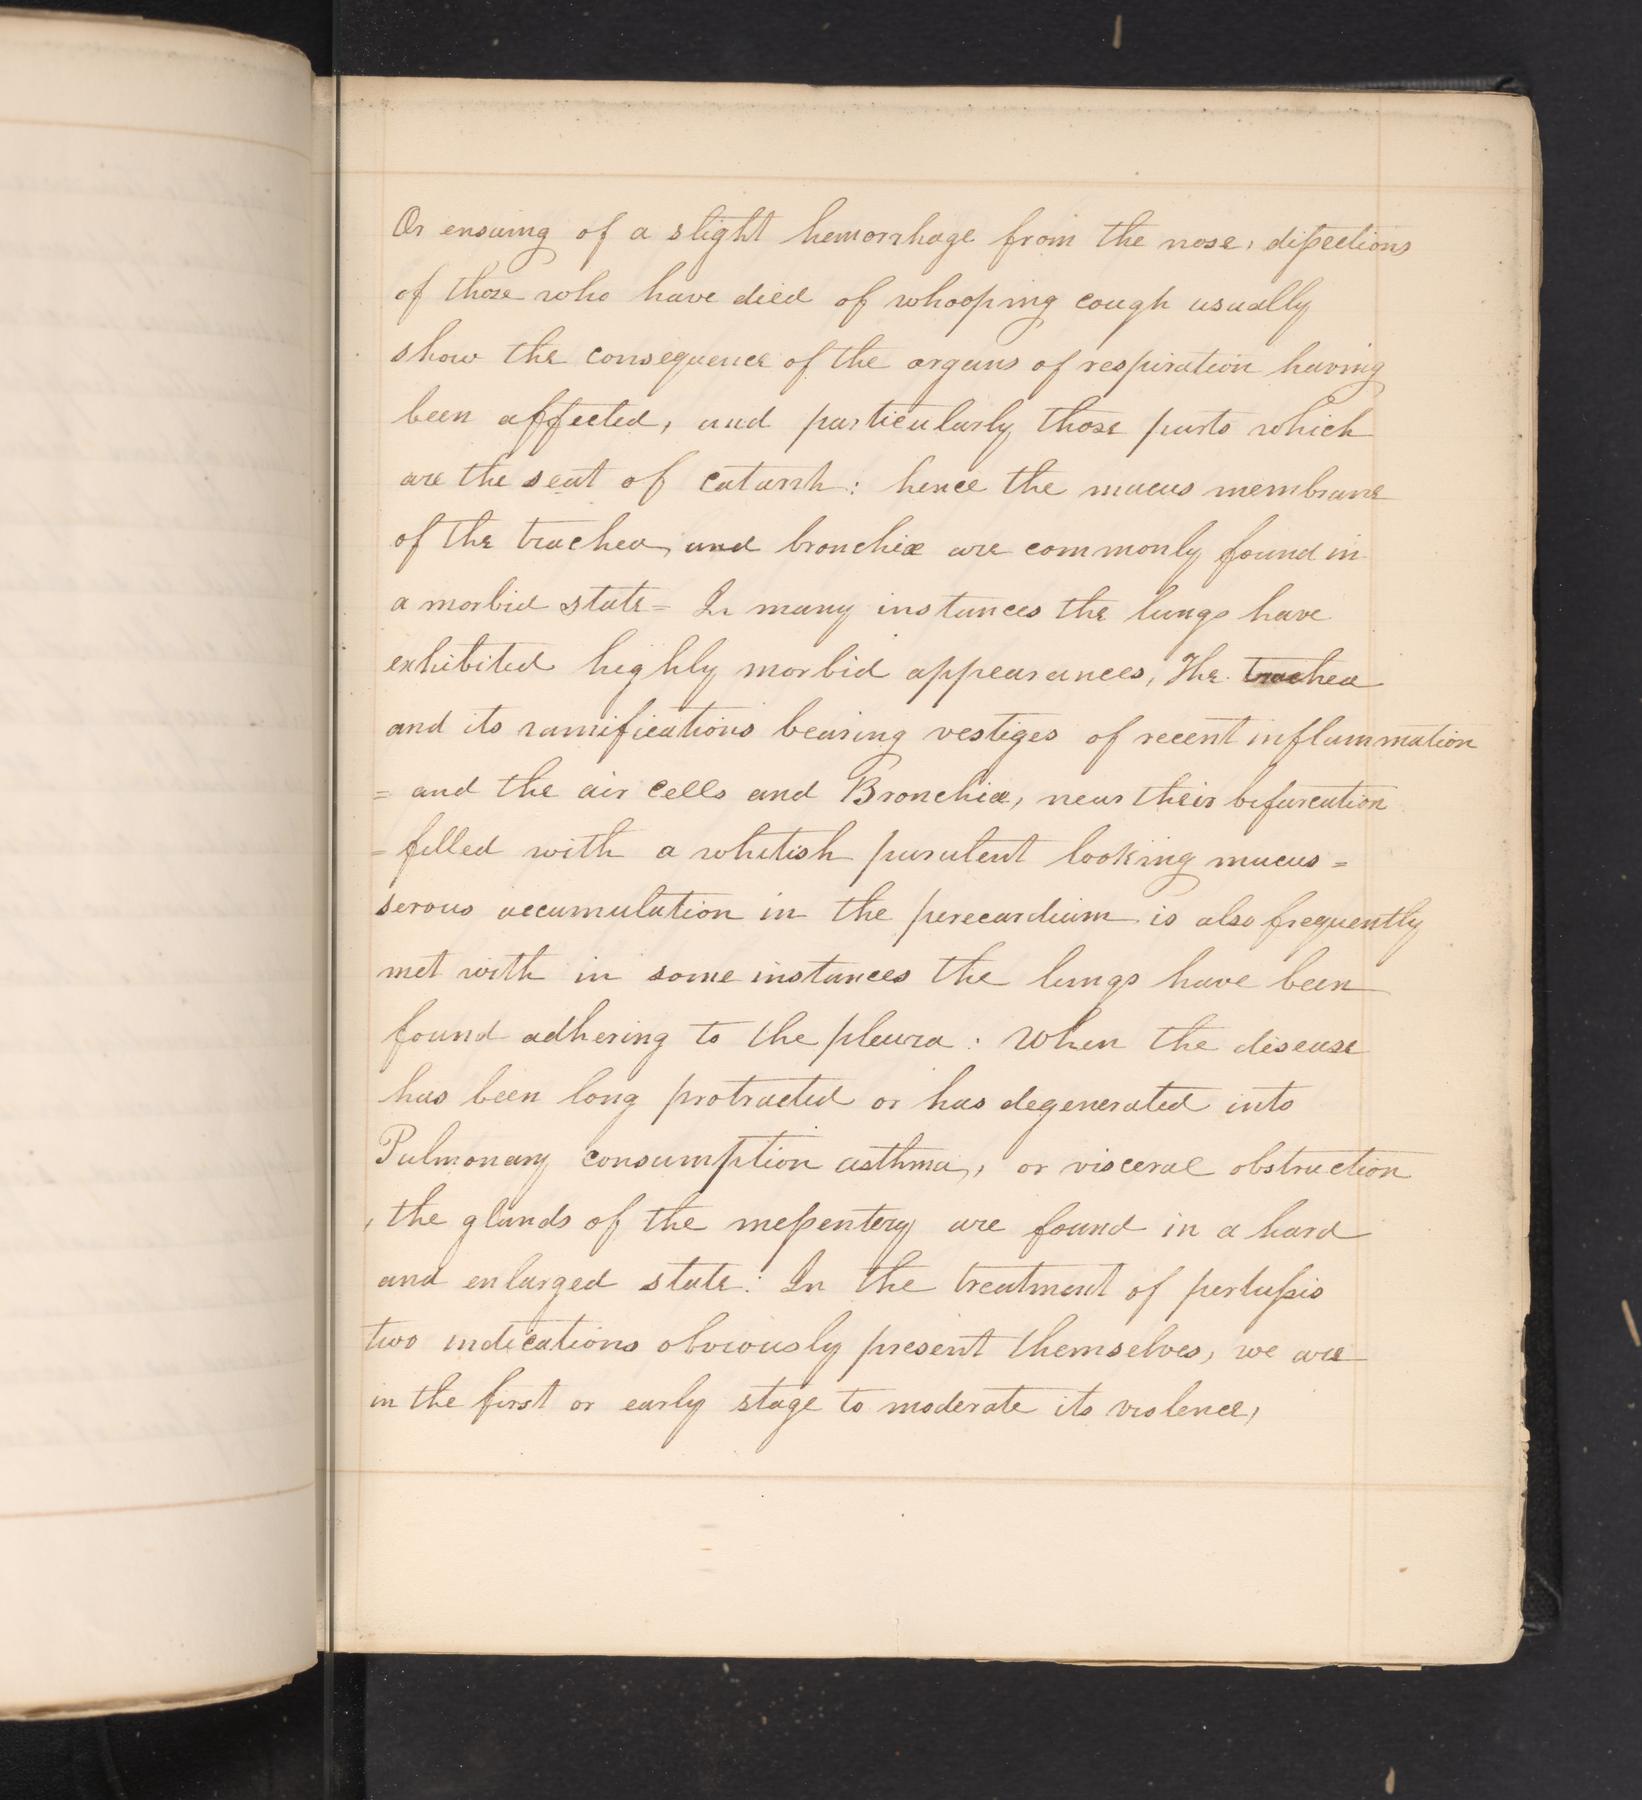 Or ensuing of a slight hemorrhage from the nose, dissections
of those who have died of whooping cough usually
show the consequence of the organs of respiration having
been affected, and particularly those parts which
are the seat of catarrh: hence the mucus membrane
of the trachea, and bronchiæ are commonly found in
a morbid state = In many instances the lungs have
exhibited highly morbid appearances, The trachea
and its ramifications bearing vestiges of recent inflammation
= and the air cells and Bronchiæ, near their bifurcation
= filled with a whitish purulent looking mucus =
serous accumulation in the perecardium is also frequently
met with in some instances the lungs have been
found adhering to the pleura : When the disease
has been long protracted or has degenerated into
Pulmonary consumption asthma, or visceral obstruction
, the glands of the messentery are found in a hard
and enlarged state: In the treatment of pertussis
two indications obviously present themselves, we are
in the first or early stage to moderate its violence,